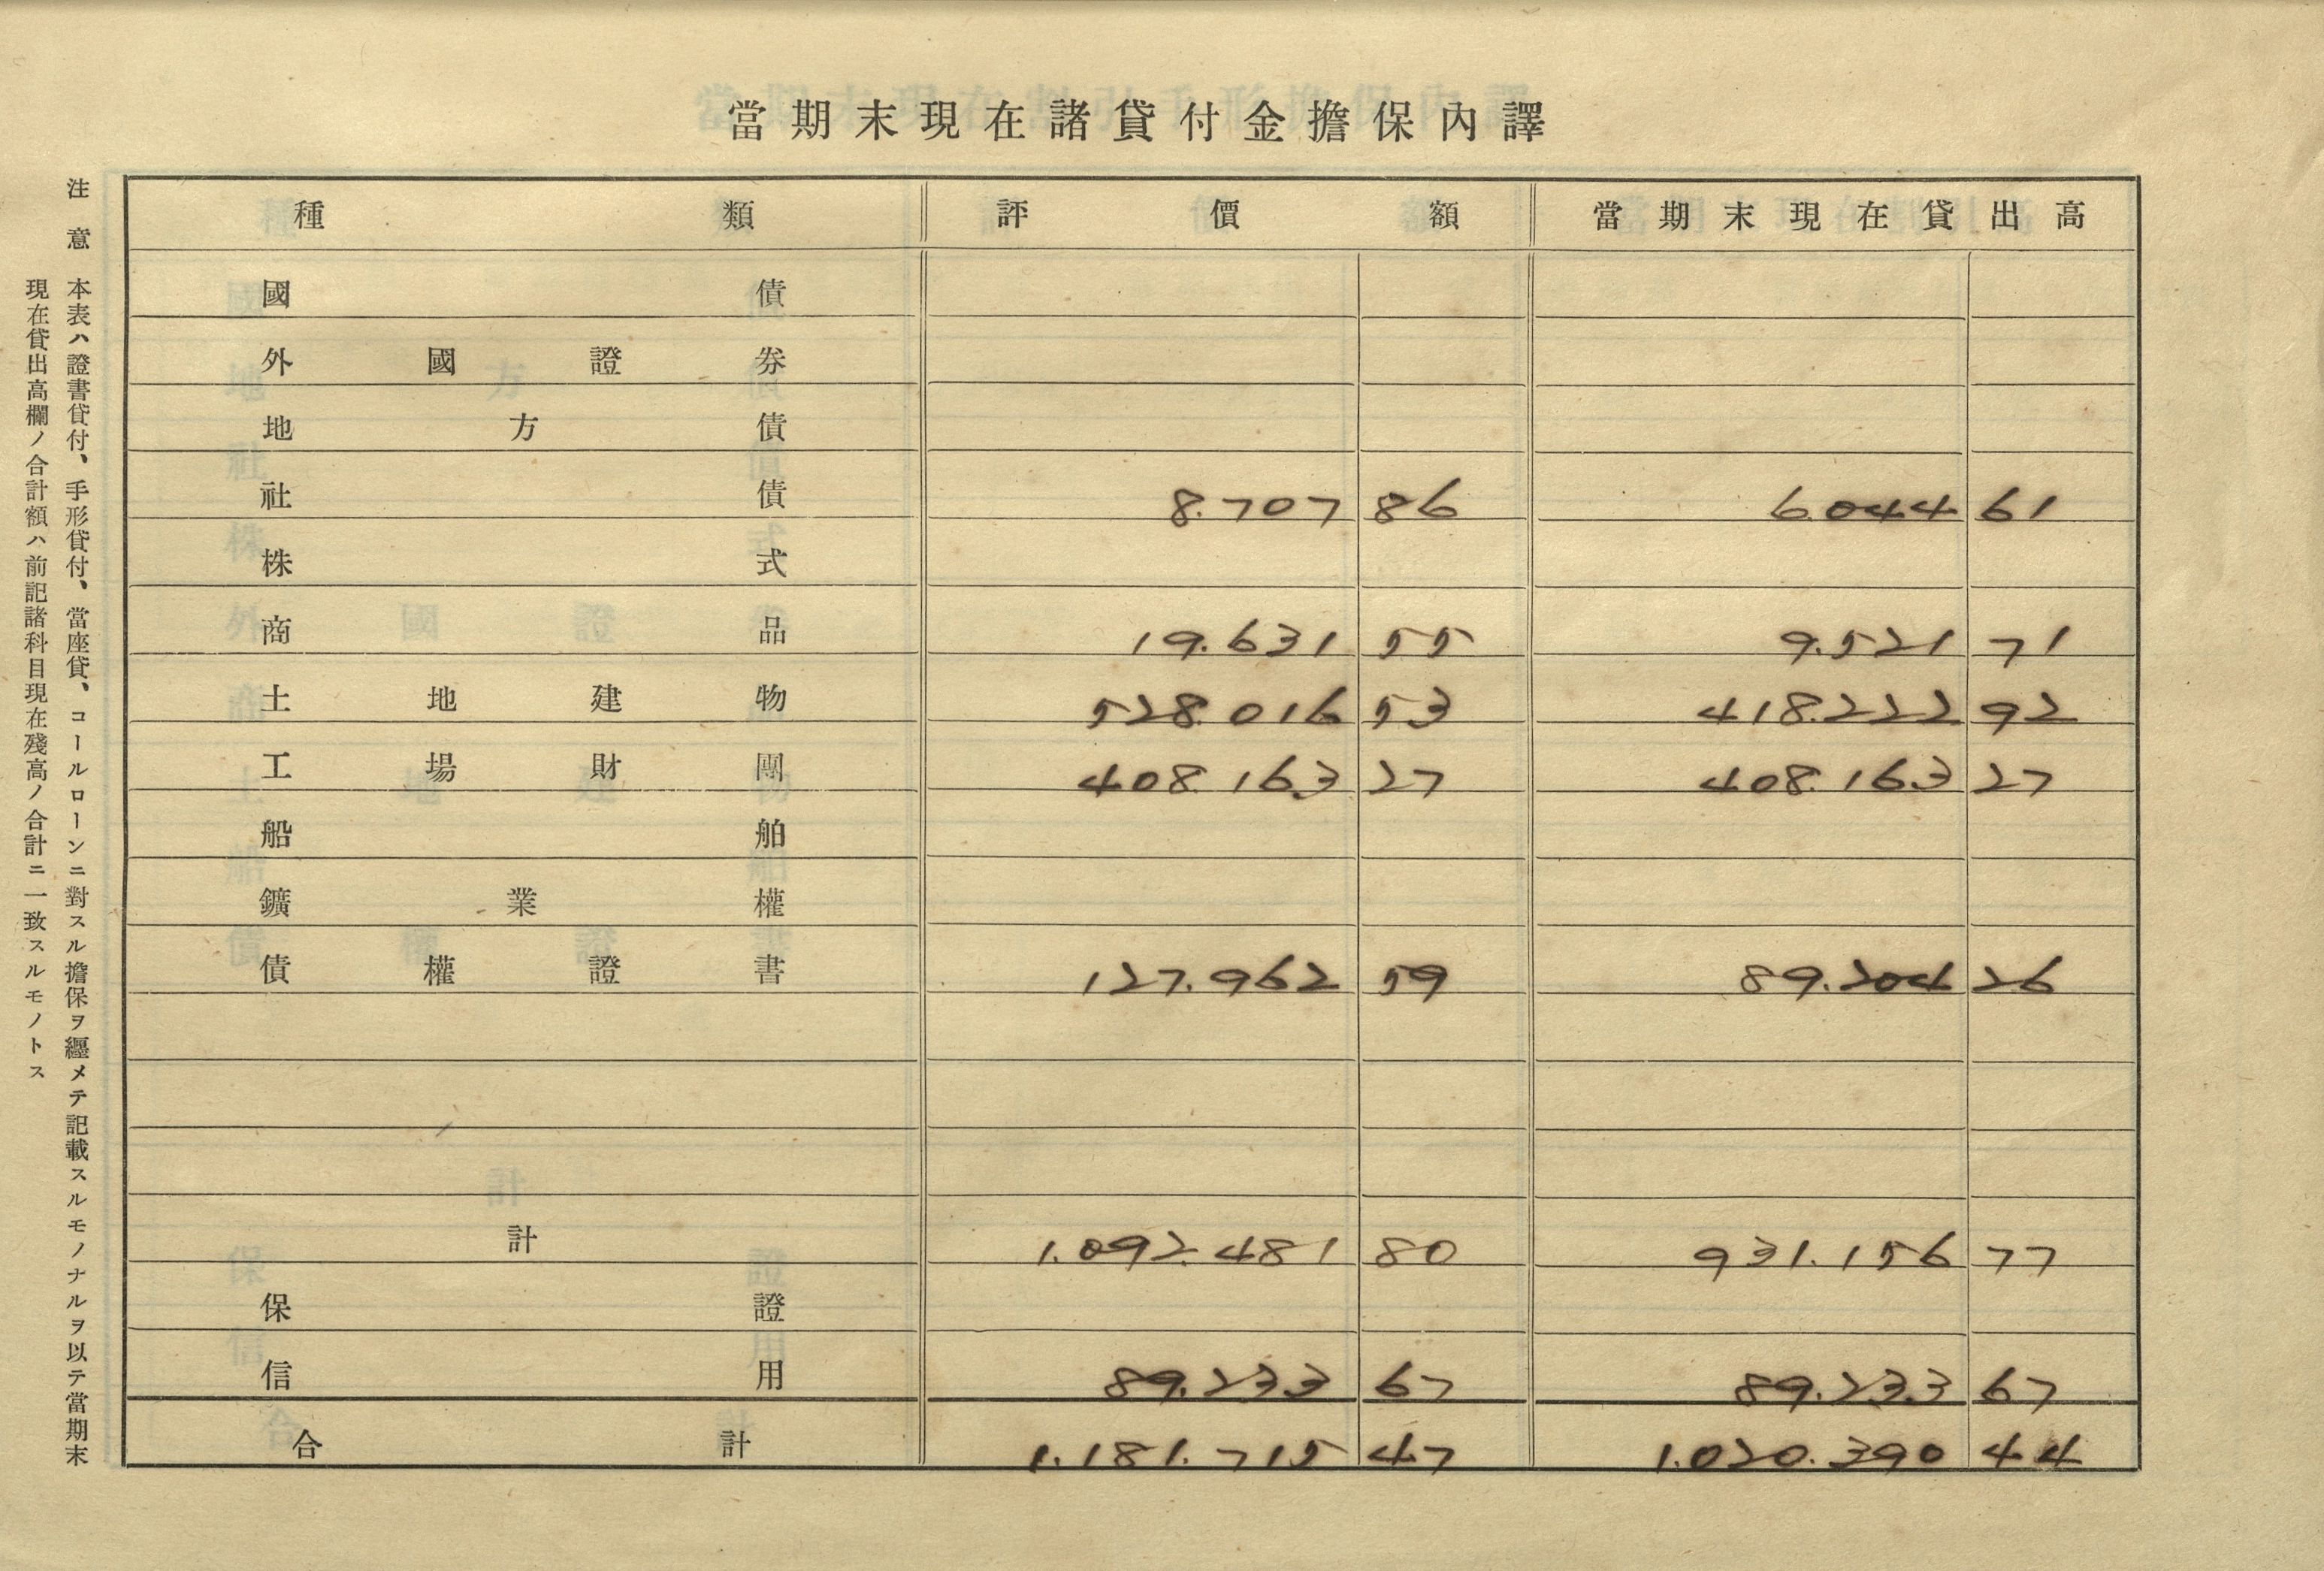 當期末現在諸貸付金擔保內譯
種類 評價額 當期末現在貸出高
國債
外國證券
地方債
社債 8.707 86 6.044 61
株式
商品 19.631 55 9.521 71
土地建物 528.016 53 418.222 92
工場財團 408.163 27 408.163 27
船舶
鑛業權
債權證書 127.962 59 89.204 26
計 1.092.481 80 931.156 77
保證
信用 89.233 67 89.233 67
合計 1.181.715 47 1.020.390 44
注意 本表ハ證書貸付、手形貸付、當座貸、コールローンニ對スル擔保ヲ纒メテ記載スルモノナルヲ以テ當期末
現在貸出高欄ノ合計額ハ前記諸科目現在殘高ノ合計ニ一致スルモノトス